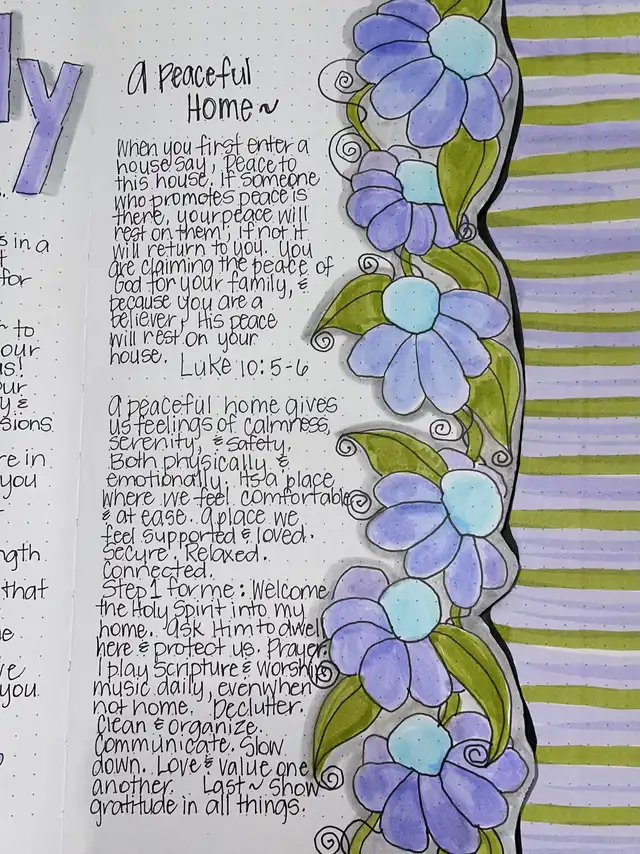 ly
s in a
for
r to
our
us!
our
y &
sions.
re in
you
ngth
that
ve
you
a Peaceful
Home~
When you first enter a
house say, Peace to
this house. If someone
who promotes peace is
there, your peace will
rest on them; if not it
will return to you. You
are claiming the peace of
God for your family, &
because you are a
believer, His peace
will rest on your
house.
Luke 10:5-6
A peaceful home gives
us feelings of calmness,
serenity, & safety.
Both physically &
emotionally, its a place
where we feel comfortable
& at ease. A place we
feel supported & loved.
Secure. Relaxed.
Connected.
Step 1 for me: Welcome
the Holy Spirit into my
home. Ask Him to dwell
here & protect us. Prayer.
I play Scripture & worship
music daily, even when
not home. Declutter.
Clean & organize.
Communicate. Slow
down. Love & value one
another. Last~ Show
gratitude in all things.